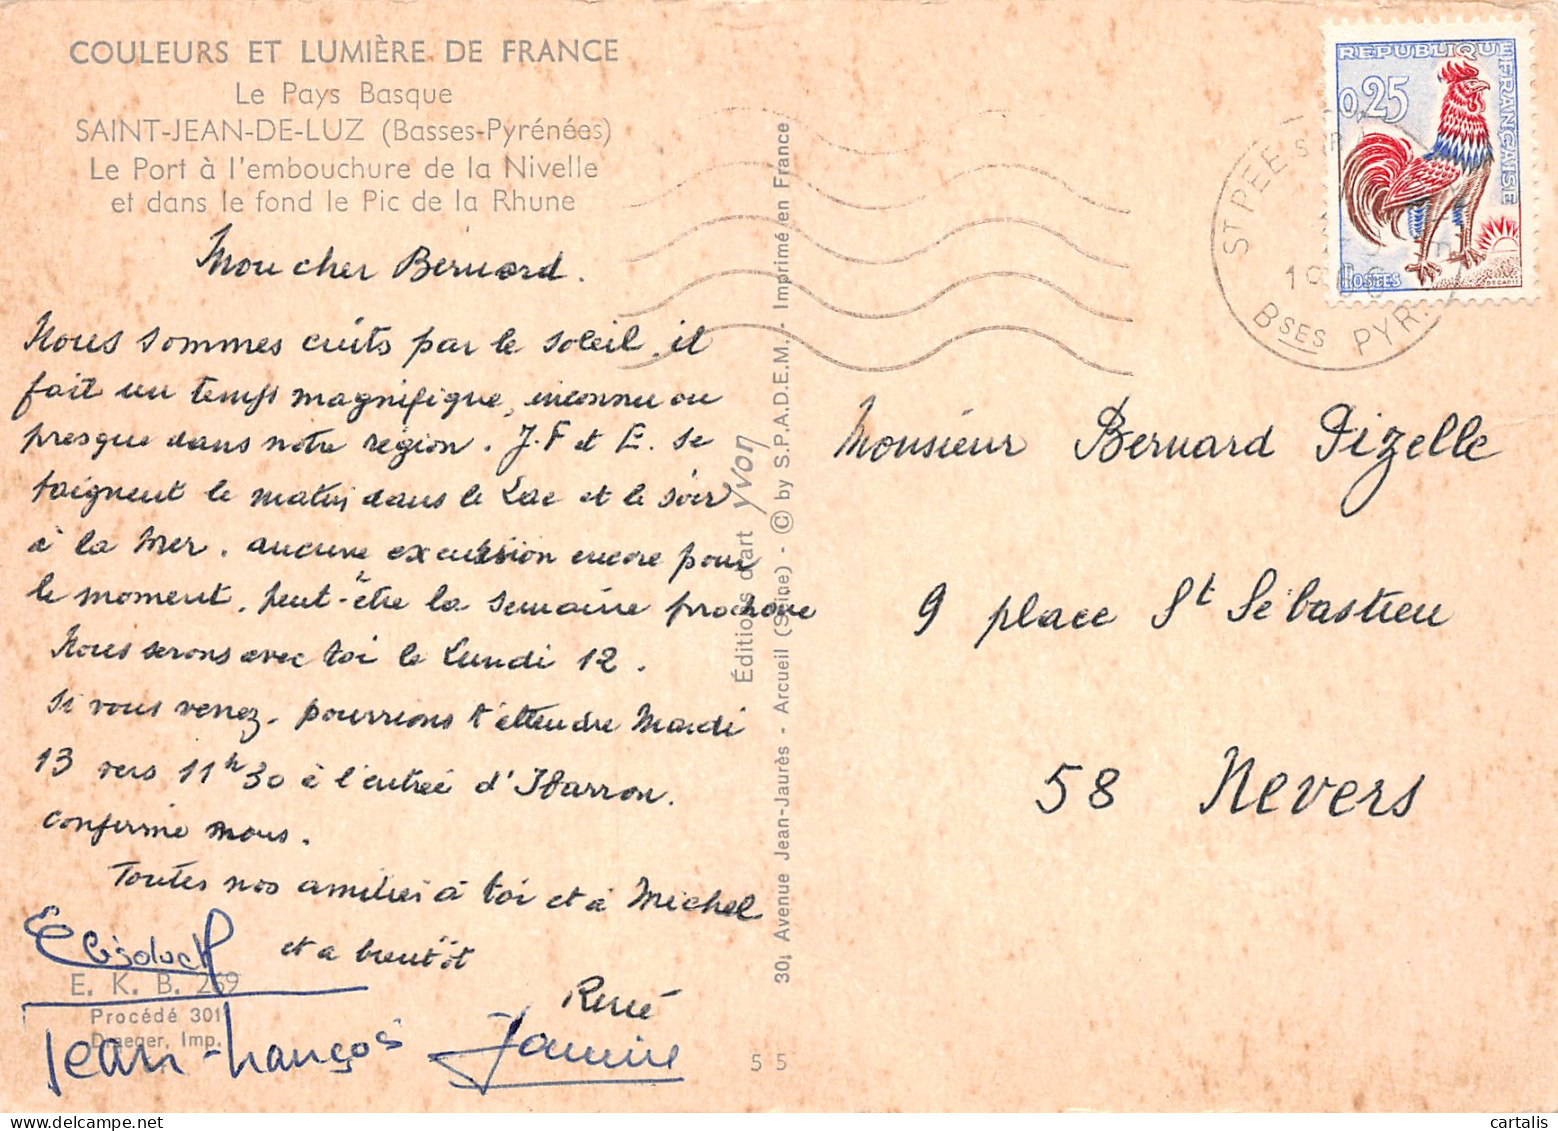 COULEURS ET LUMIÈRE DE FRANCE
Le Pays Basque
SAINT-JEAN-DE-LUZ (Basses-Pyrénées)
Le Port à l'embouchure de la Nivelle
et dans le fond le Pic de la Rhune
Mon cher Bernard.
Nous sommes cuits par le soleil. il
fait un temps magnifique, inconnu ou
presque dans notre région. J.F et E. se
baignent le matin dans le Lac et le soir
à la Mer. aucune excursion encore pour
le moment. peut-être la semaine prochaine
Nous serons avec toi le Lundi 12.
Si vous venez. pourrions t'attendre Mardi
13 vers 11h30 à l'entrée d'Ibarron.
confirme nous.
Toutes nos amitiés à toi et à Michel
et a bientôt
René
Jean-François
E. K. B. 269
Procédé 301
Draeger, Imp.
Éditions d'art Yvon
30, Avenue Jean-Jaurès - Arcueil (Seine) - © by S.P.A.D.E.M. - Imprimé en France
5 5
REPUBLIQUE FRANÇAISE
0,25
POSTES
DECARIS
ST PEE S
Bses PYR.
Monsieur Bernard Pizelle
9 place St Sébastien
58 Nevers
cartalis